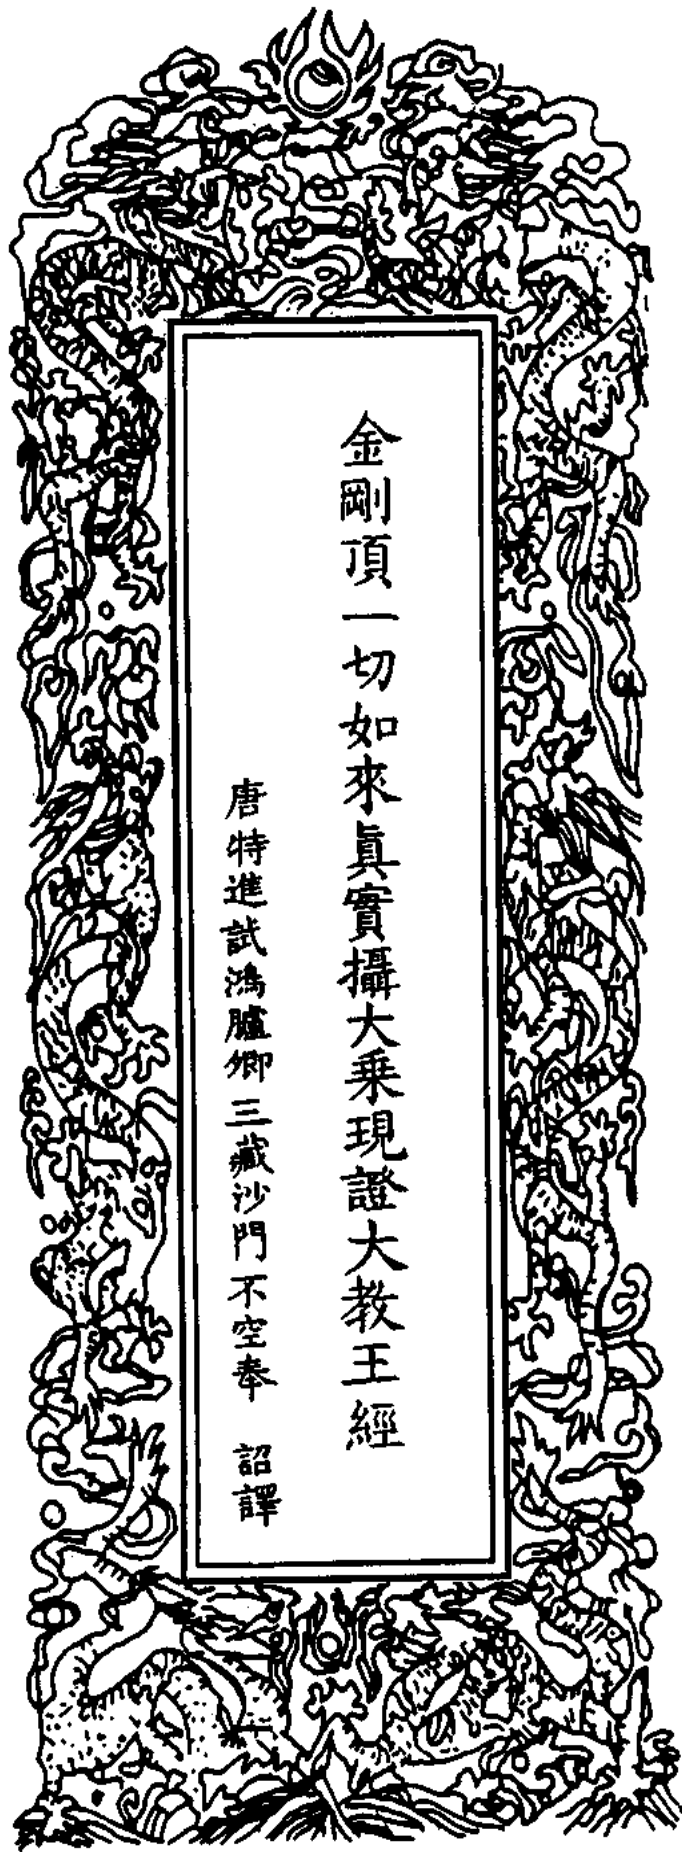 金剛頂一切如來眞實攝大乘現證大教王經
唐特進試鴻臚卿三藏沙門不空奉　詔譯